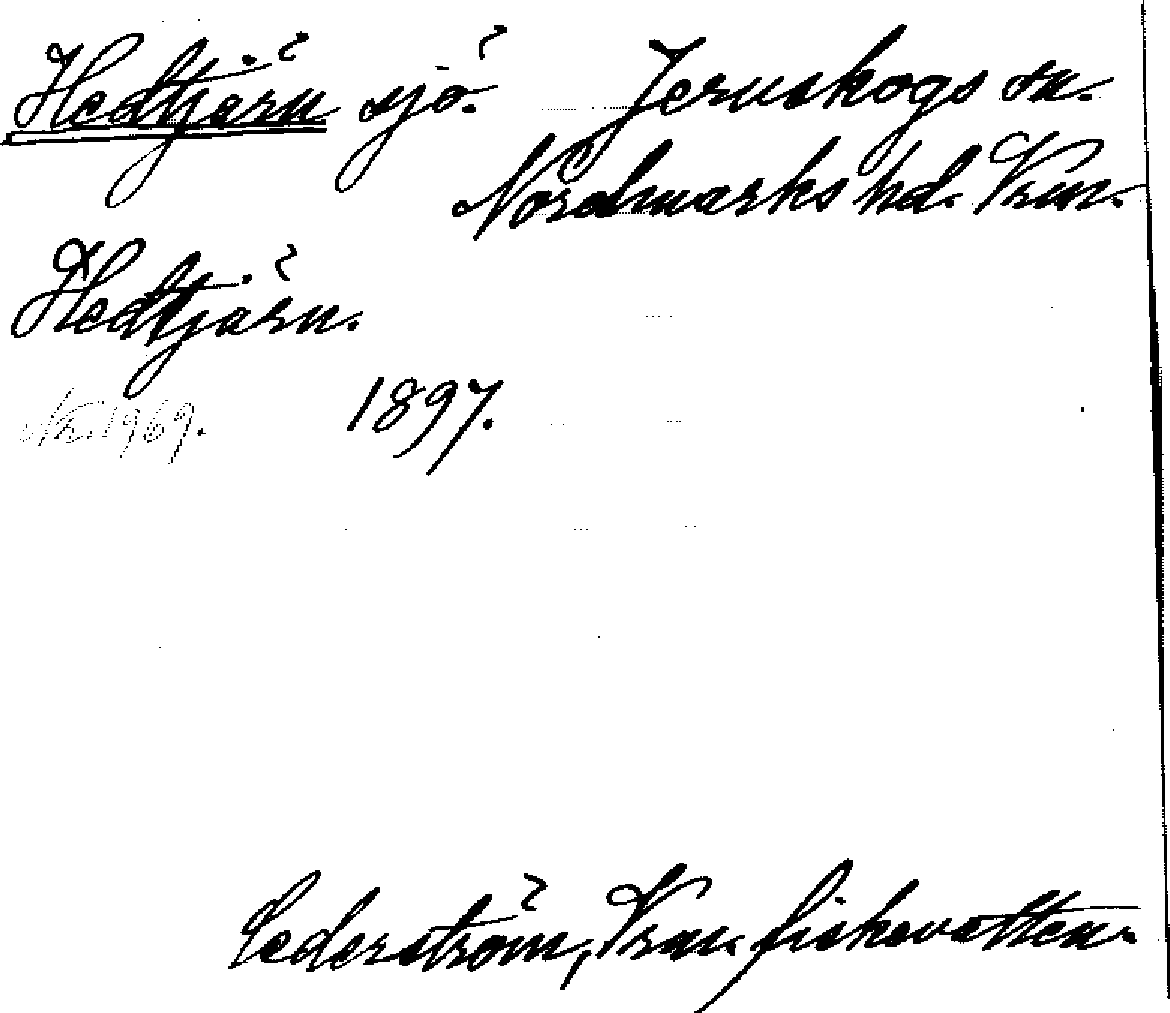 Hedtjärn sjö. Jernskogs sn.
Nordmarks hd. Vrm.
Hedtjärn.
1897.
Nr. 1969.
Cederström, Vrm. fiskevatten.